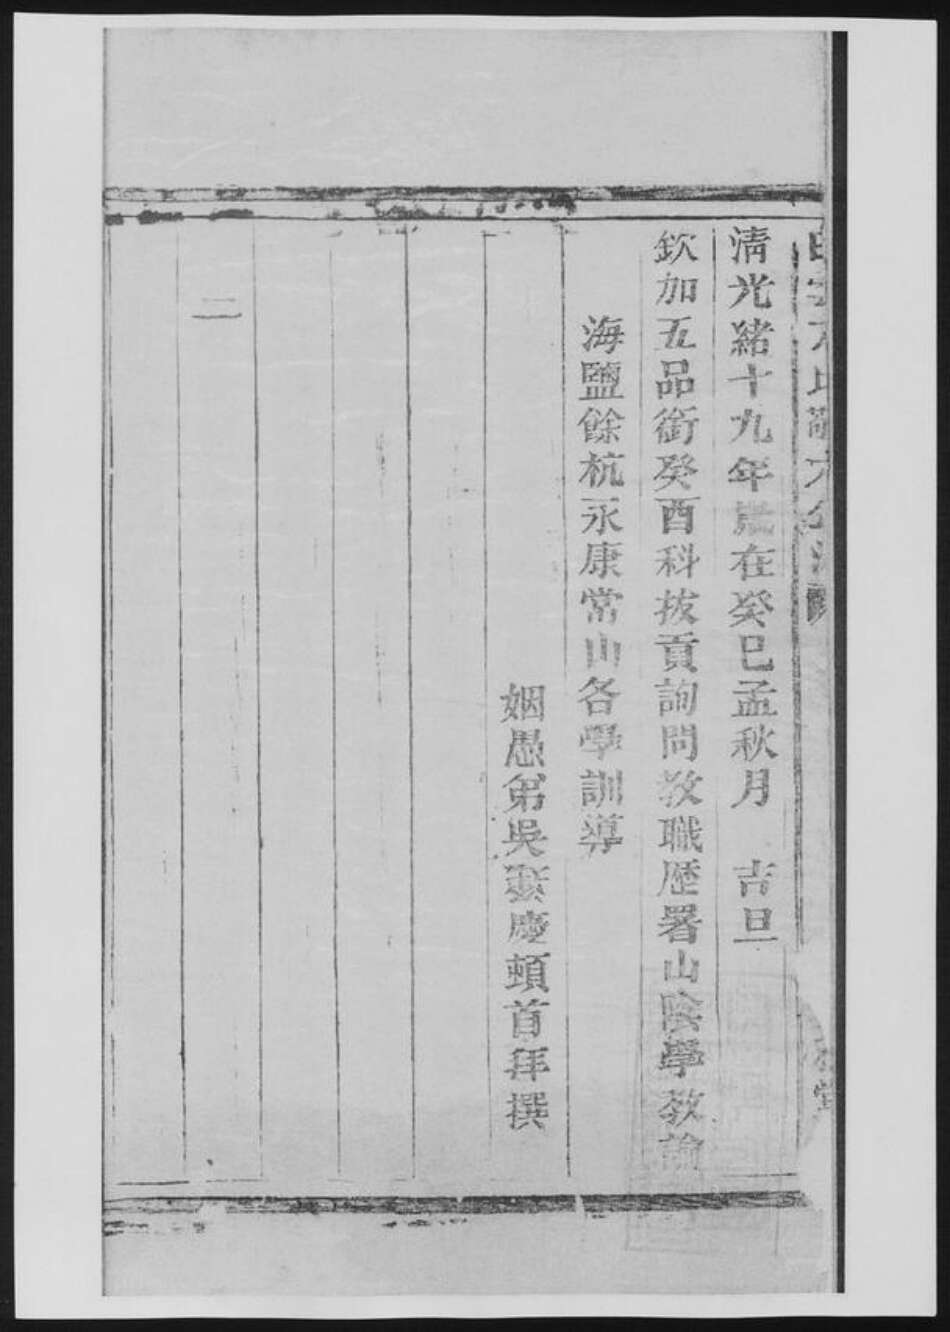 清光緒十九年歲在癸巳孟秋月　吉旦
欽加五品銜癸酉科拔貢詢問教職歷署山陰學教諭
海鹽餘杭永康常山各學訓導
姻愚弟吳 慶頓首拜撰
二